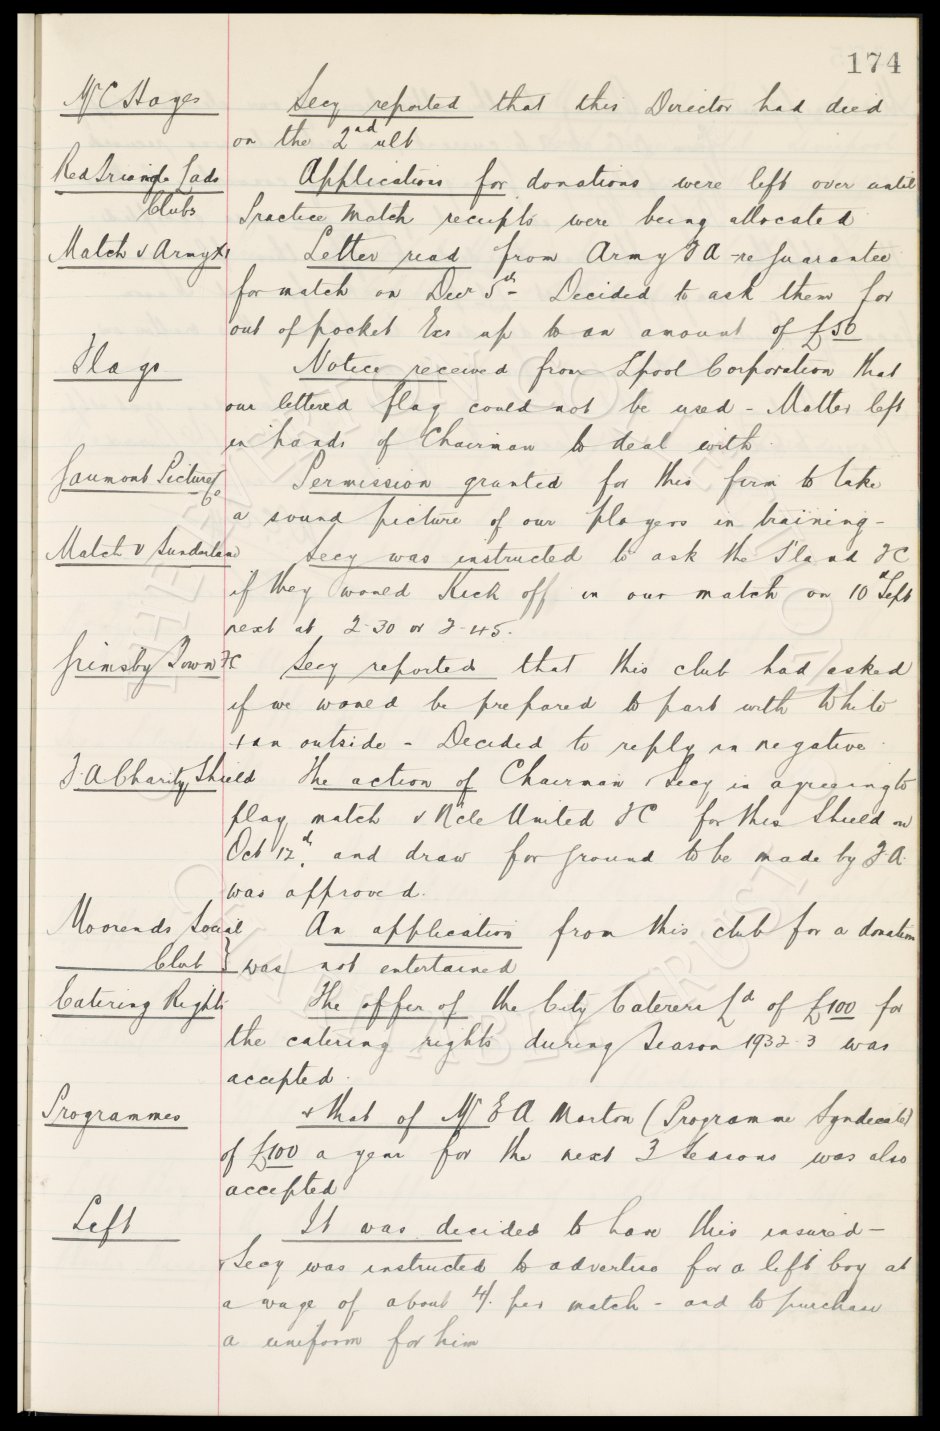 174
Mr C Hayes Secy reported that this Director had died
on the 2nd ult
Red Triangle Lads Applications for donations were left over until
Clubs Practice Match receipts were being allocated
Match v Army Letter read from Army FA - re guarantee
for match on Decr 5th - Decided to ask them for
out of pocket Exs up to an amount of £50
Flags Notice received from Lpool Corporation that
our lettered flag could not be used - Matter left
in hands of Chairman to deal with.
Gaumont Pictures Permission granted for this firm to take
Co a sound picture of our players in training -
Match v Sunderland Secy was instructed to ask the S'land FC
if they would Kick off in our match on 10th Sept
next at 2-30 or 2-45.
Grimsby Town FC Secy reported that this club had asked
if we would be prepared to part with White
+ an outside - Decided to reply in negative.
F.A Charity Shield The action of Chairman & Secy in agreeing to
play match v Ncle United FC for this Shield on
Oct 12th, and draw for ground to be made by F.A.
was approved.
Moorends Social An application from this club for a donation
Club } was not entertained
Catering Rights The offer of the City Caterers Ld of £100 for
the catering rights during Season 1932-3 was
accepted.
Programmes + that of Mr E A Morton (Programme Syndicate)
of £100 a year for the next 3 Seasons was also
accepted
Lift It was decided to have this insured -
Secy was instructed to advertise for a lift boy at
a wage of about 4/- per match - and to purchase
a uniform for him
THE EVERTON COLLECTION
CHARITABLE TRUST